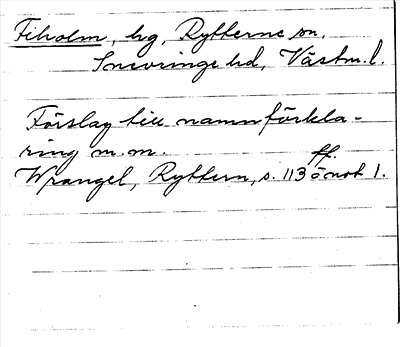 Fiholm, hg, Rytterne sn.
Snevringe hd, Västm. l.
Förslag till namnförkla-
ring m.m.
Wrangel, Ryttern, s. 113 ff. o not 1.